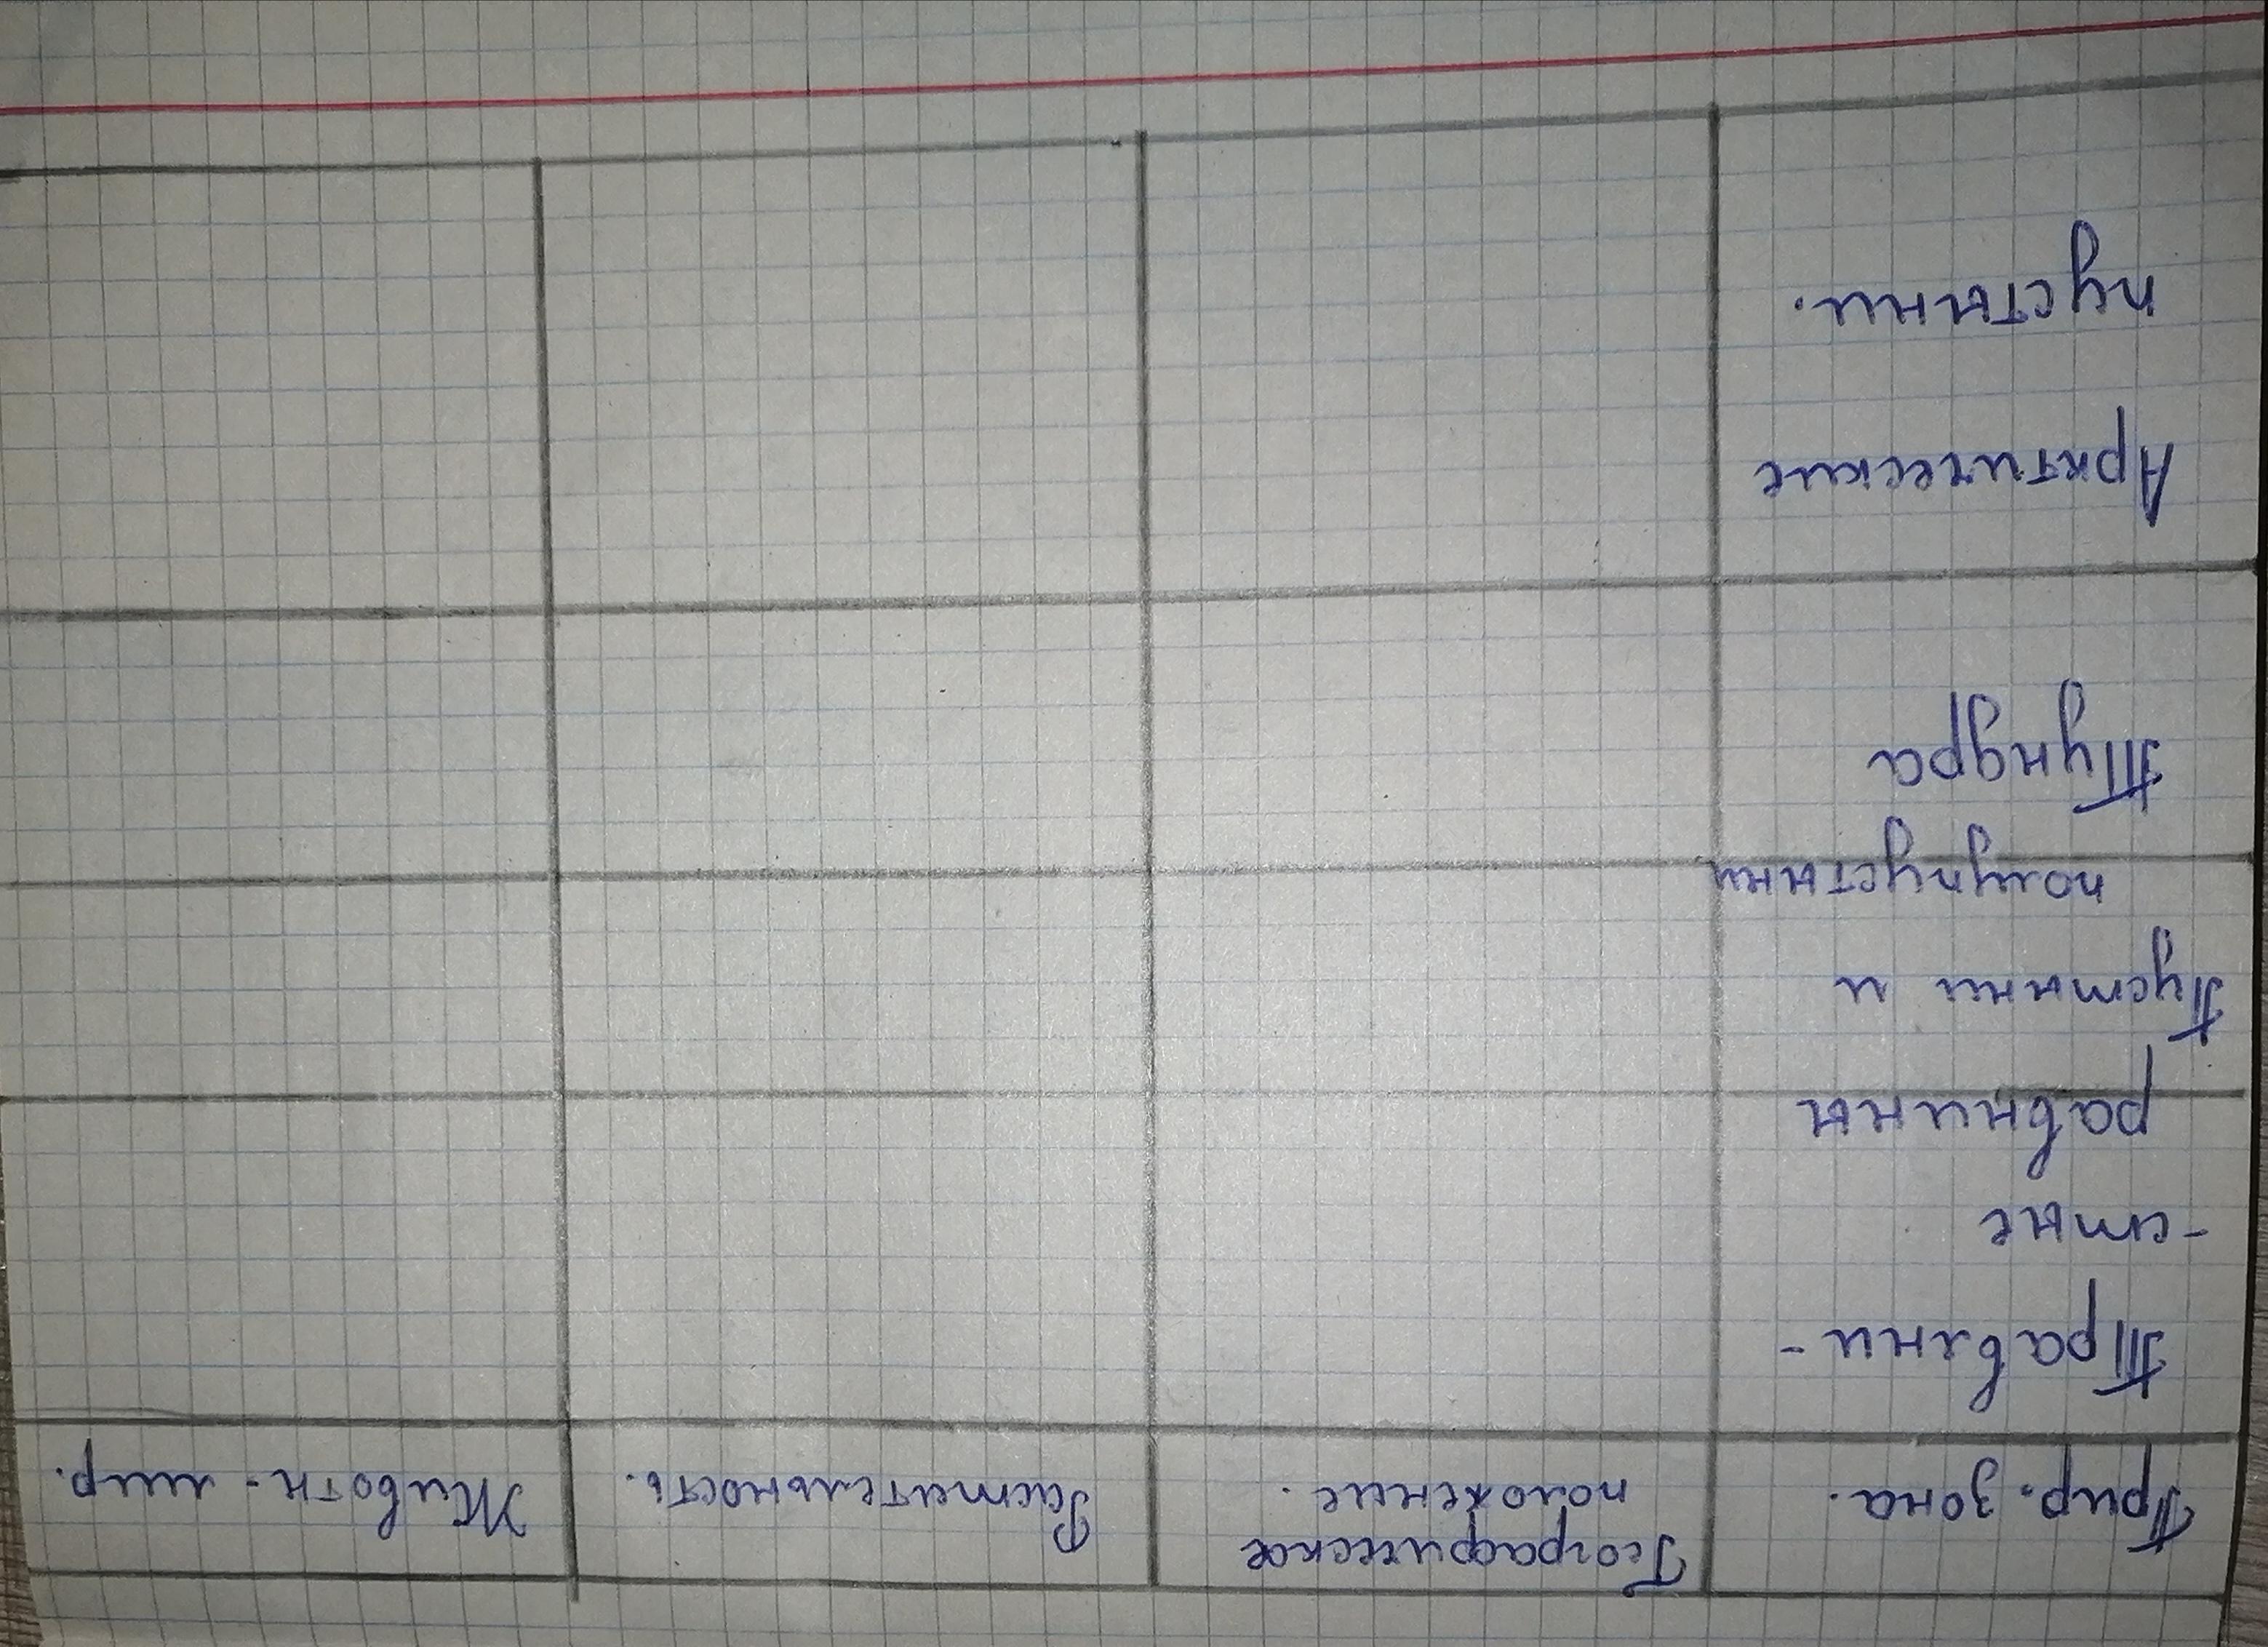 Прир. зона.
Географическое
положение.
Растительность.
Животн. мир.
Травяни-
-стые
равнины
Пустыни и
полупустыни
Тундра
Арктические
пустыни.